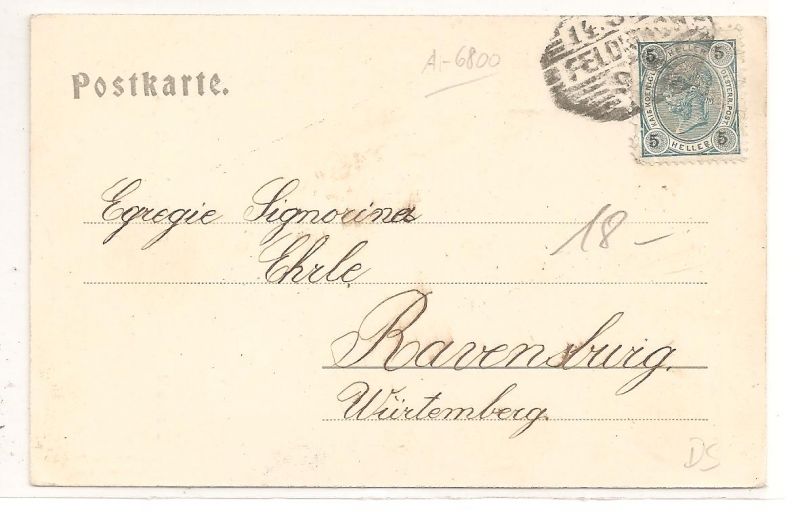 Postkarte.
A-6800
5 HELLER 5
KAIS. KOENIGL. OESTERR. POST.
5 HELLER 5
Egregie Signorine
18-
Ehrle
Ravensburg.
Würtemberg.
DS